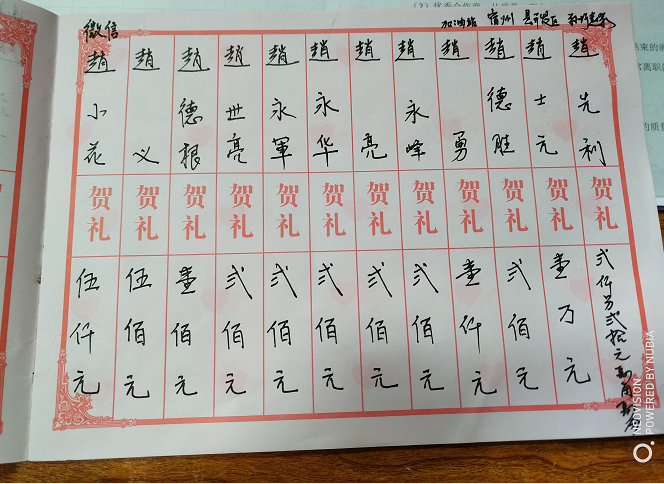 趙先利
贺礼
弍仟另弍拾元
县开发区
趙士元
贺礼
壹万元
宿州
趙德胜
贺礼
弍佰元
加油站
趙勇
贺礼
壹仟元
趙永峰
贺礼
弍佰元
趙亮
贺礼
弍佰元
趙永华
贺礼
弍佰元
趙永軍
贺礼
弍佰元
趙世亮
贺礼
弍佰元
趙德根
贺礼
壹佰元
趙义
贺礼
伍佰元
微信
趙小花
贺礼
伍仟元
NEOVISION
POWERED BY NUBIA